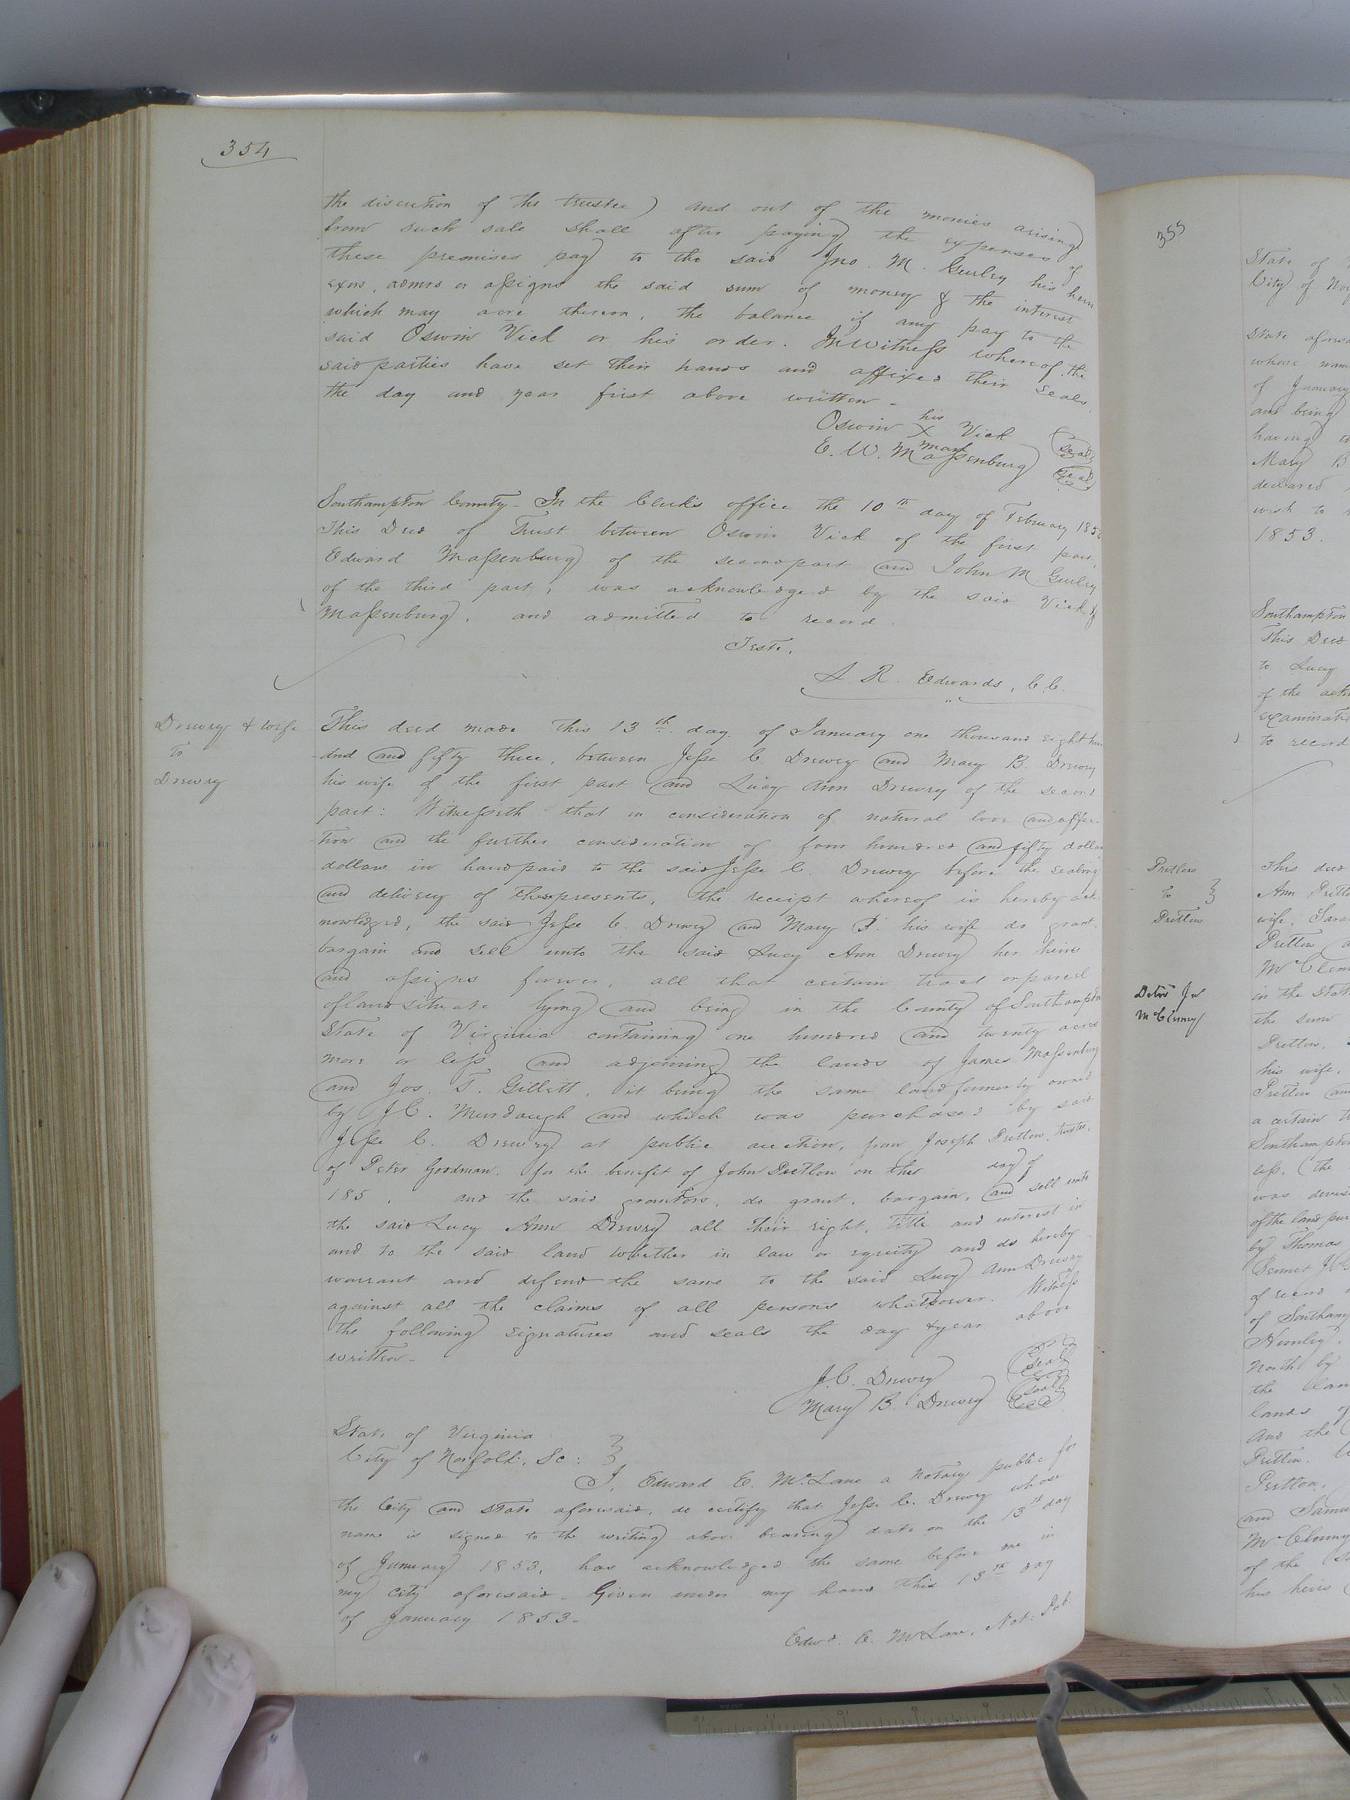 354
the discretion of the trustee) and out of the monies arising
from such sale shall after paying the expenses of
these premises pay to the said Jno. M. Gurley his heirs
exors, admrs or assigns the said sum of money & the interest
which may acre thereon, the balance if any pay to the
said Oswin Vick or his order. In witness whereof, the
said parties have set their hands and affixed their seals
the day and year first above written -
his
Oswin X Vick (Seal)
mark
E. W. Massenburg (Seal)
Southampton County - In the Clerk's office the 10th day of February 185
This Deed of Trust between Oswin Vick of the first part,
Edward Massenburg of the second part and John M Gurley
of the third part, was acknowledged by the said Vick &
Massenburg, and admitted to record.
Teste,
L. R. Edwards, C.C.
Drewry & wife
to
Drewry
This deed made this 13th day of January one thousand eight hun
dred and fifty three, between Jesse C Drewry and Mary B Drewry
his wife of the first part and Lucy Ann Drewry of the second
part: Witnesseth that in consideration of natural love and affec-
tion and the further consideration of four hundred and fifty dollars
dollars in hand paid to the said Jesse C. Drewry before the sealing
and delivery of these presents, the receipt whereof is hereby ack
nowledged, the said Jesse C Drewry and Mary B. his wife do grant,
bargain and sell unto the said Lucy Ann Drewry her heirs
and assigns forever, all that certain tract or parcel
of land situate lying and being in the County of Southampton
State of Virginia containing one hundred and twenty acres
more or less and adjoining the lands of James Massenburg
and Jos. T. Gillett, it being the same land formerly owned
by J.C. Murdaugh and which was purchased by said
Jesse C. Drewry at public auction, from Joseph Pretlow, trustee,
of Peter Goodman for the benefit of John Pretlow on the day of
185 , and the said grantors, do grant, bargain, and sell unto
the said Lucy Ann Drewry all their right, title and interest in
and to the said land whether in law or equity and do hereby
warrant and defend the same to the said Lucy Ann Drewry
against all the claims of all persons whatsoever. Witness
the following signatures and seals the day & year above
written -
J.C. Drewry (Seal)
Mary B. Drewry (Seal)
State of Virginia
City of Norfolk, Sc: }
I, Edward E. McLane a Notary public for
the City and State aforesaid, do certify that Jesse C. Drewry whose
name is signed to the writing above bearing date on the 13th day
of January 1853, has acknowledged the same before me in
my city aforesaid - Given under my hand this 13th day
of January 1853 -
Edwd. E. McLane, Not: Pub.
355
State of
City of Nor
State afores
whose nam
of January
and being
having
Mary B
declared
wish to
1853.
Southampton
This Deed
to Lucy
of the ack
examinati
to record
Pretlow
to }
Pretlow
This deed
Ann Pretlo
wife, Sara
Pretlow
McClen
in the Stat
the sum
Pretlow.
his wife,
Pretlow and
a certain
Southampton
less, (the
was devis
of the land pur
by Thomas
of record
of Southamp
north by
the lan
lands of
And the
Pretlow.
Pretlow.
and Samu
McClenny
of the
his heirs
McClenny